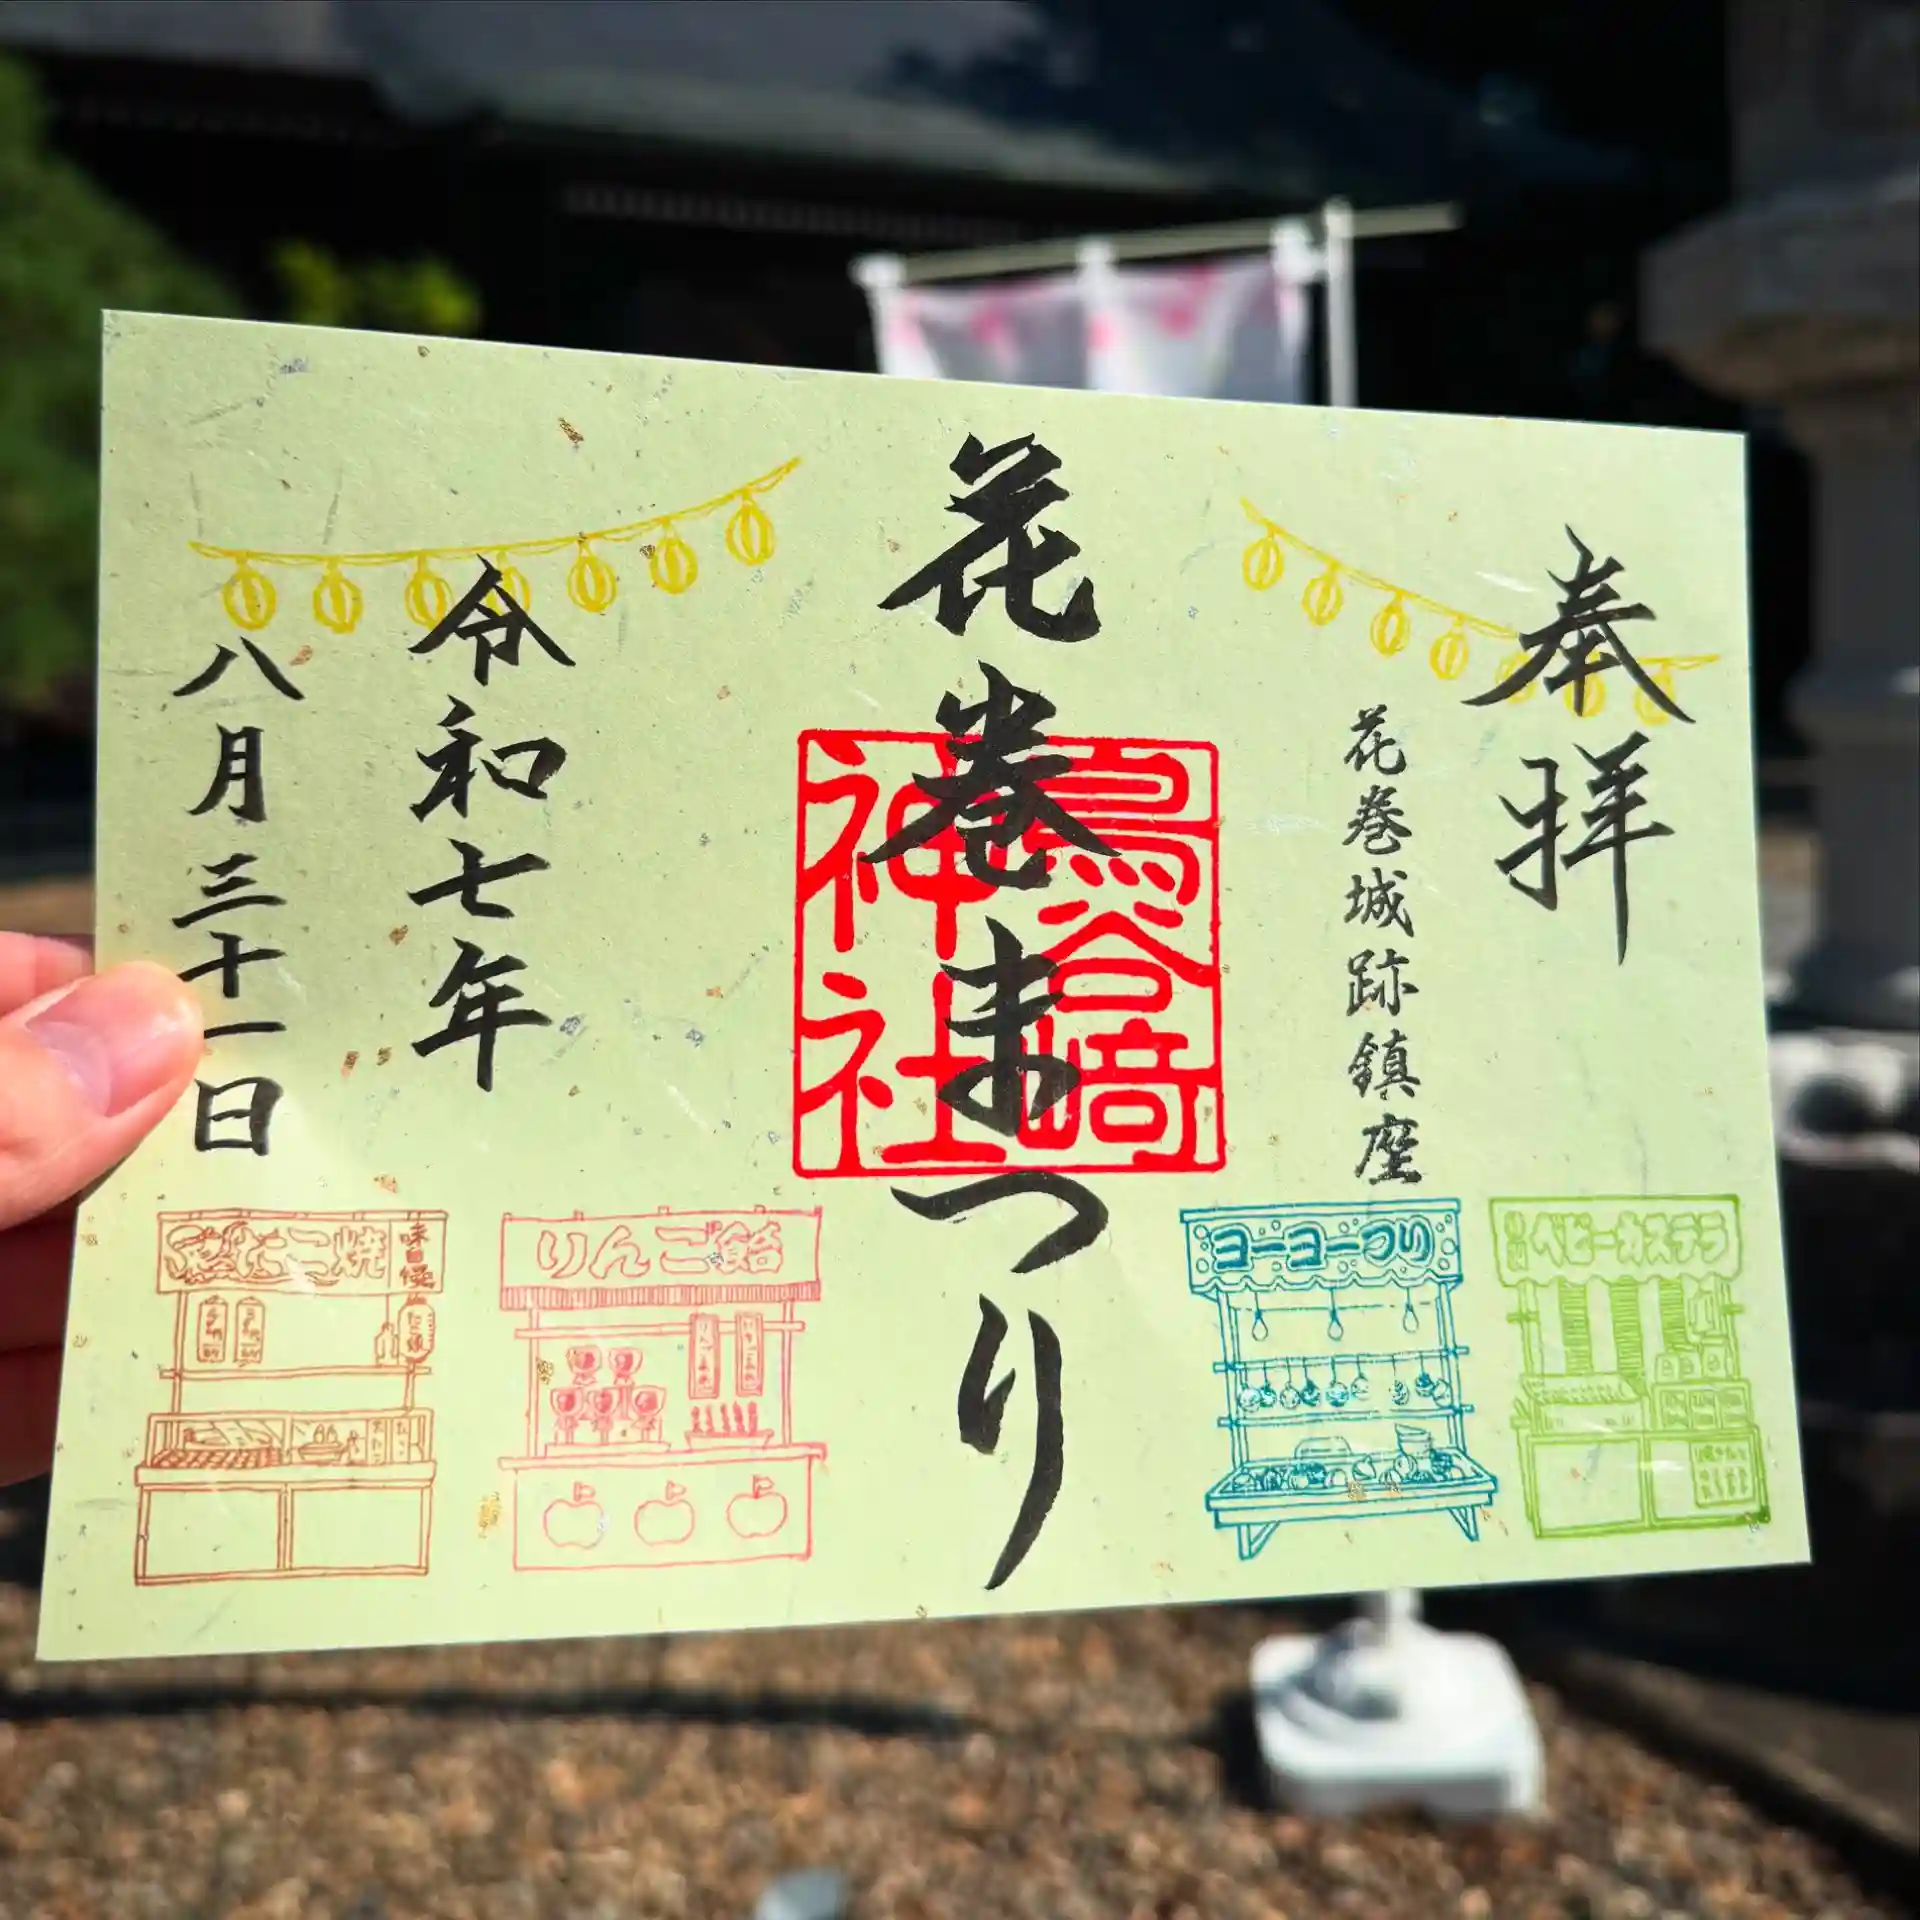 奉拝
花巻城跡鎮座
花巻まつり
鳥谷崎
神社
令和七年
八月三十一日
たこ焼
味自慢
りんご飴
りんごあめ
ヨーヨーつり
ベビーカステラ